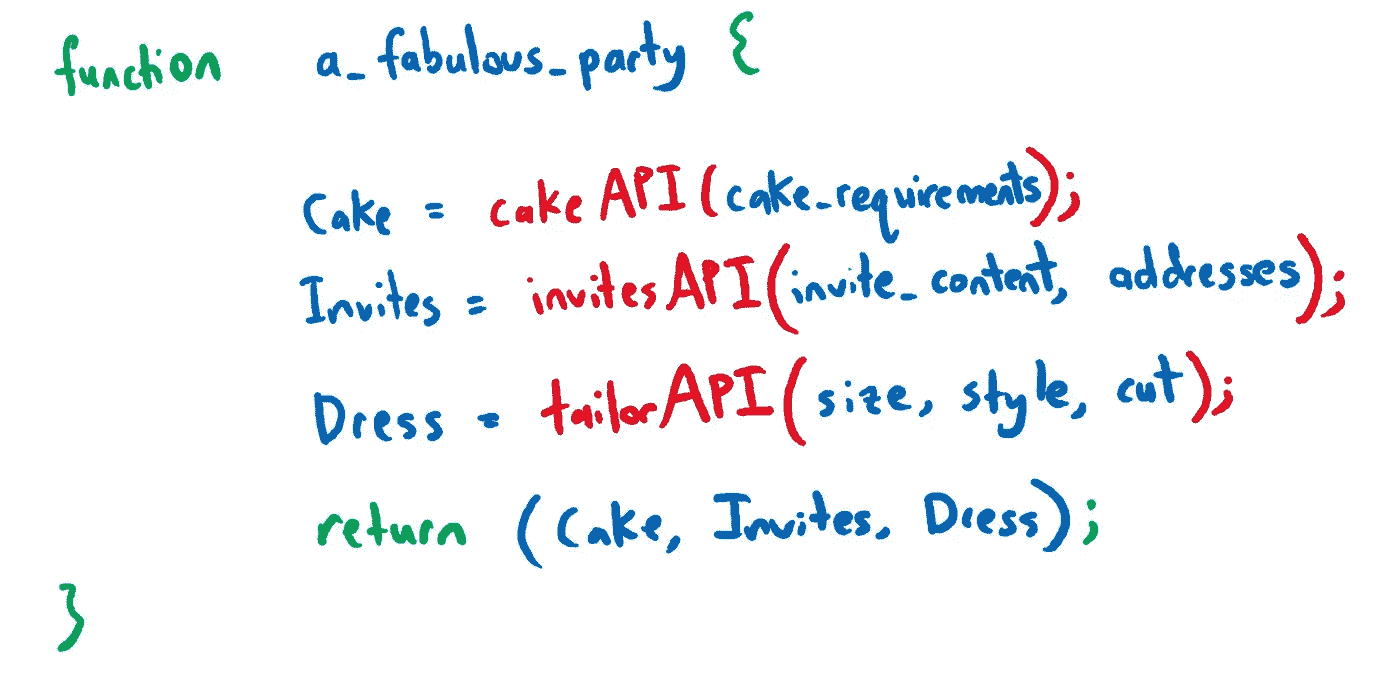 function a_fabulous_party {
Cake = cakeAPI(cake_requirements);
Invites = invitesAPI(invite_content, addresses);
Dress = tailorAPI(size, style, cut);
return (Cake, Invites, Dress);
}